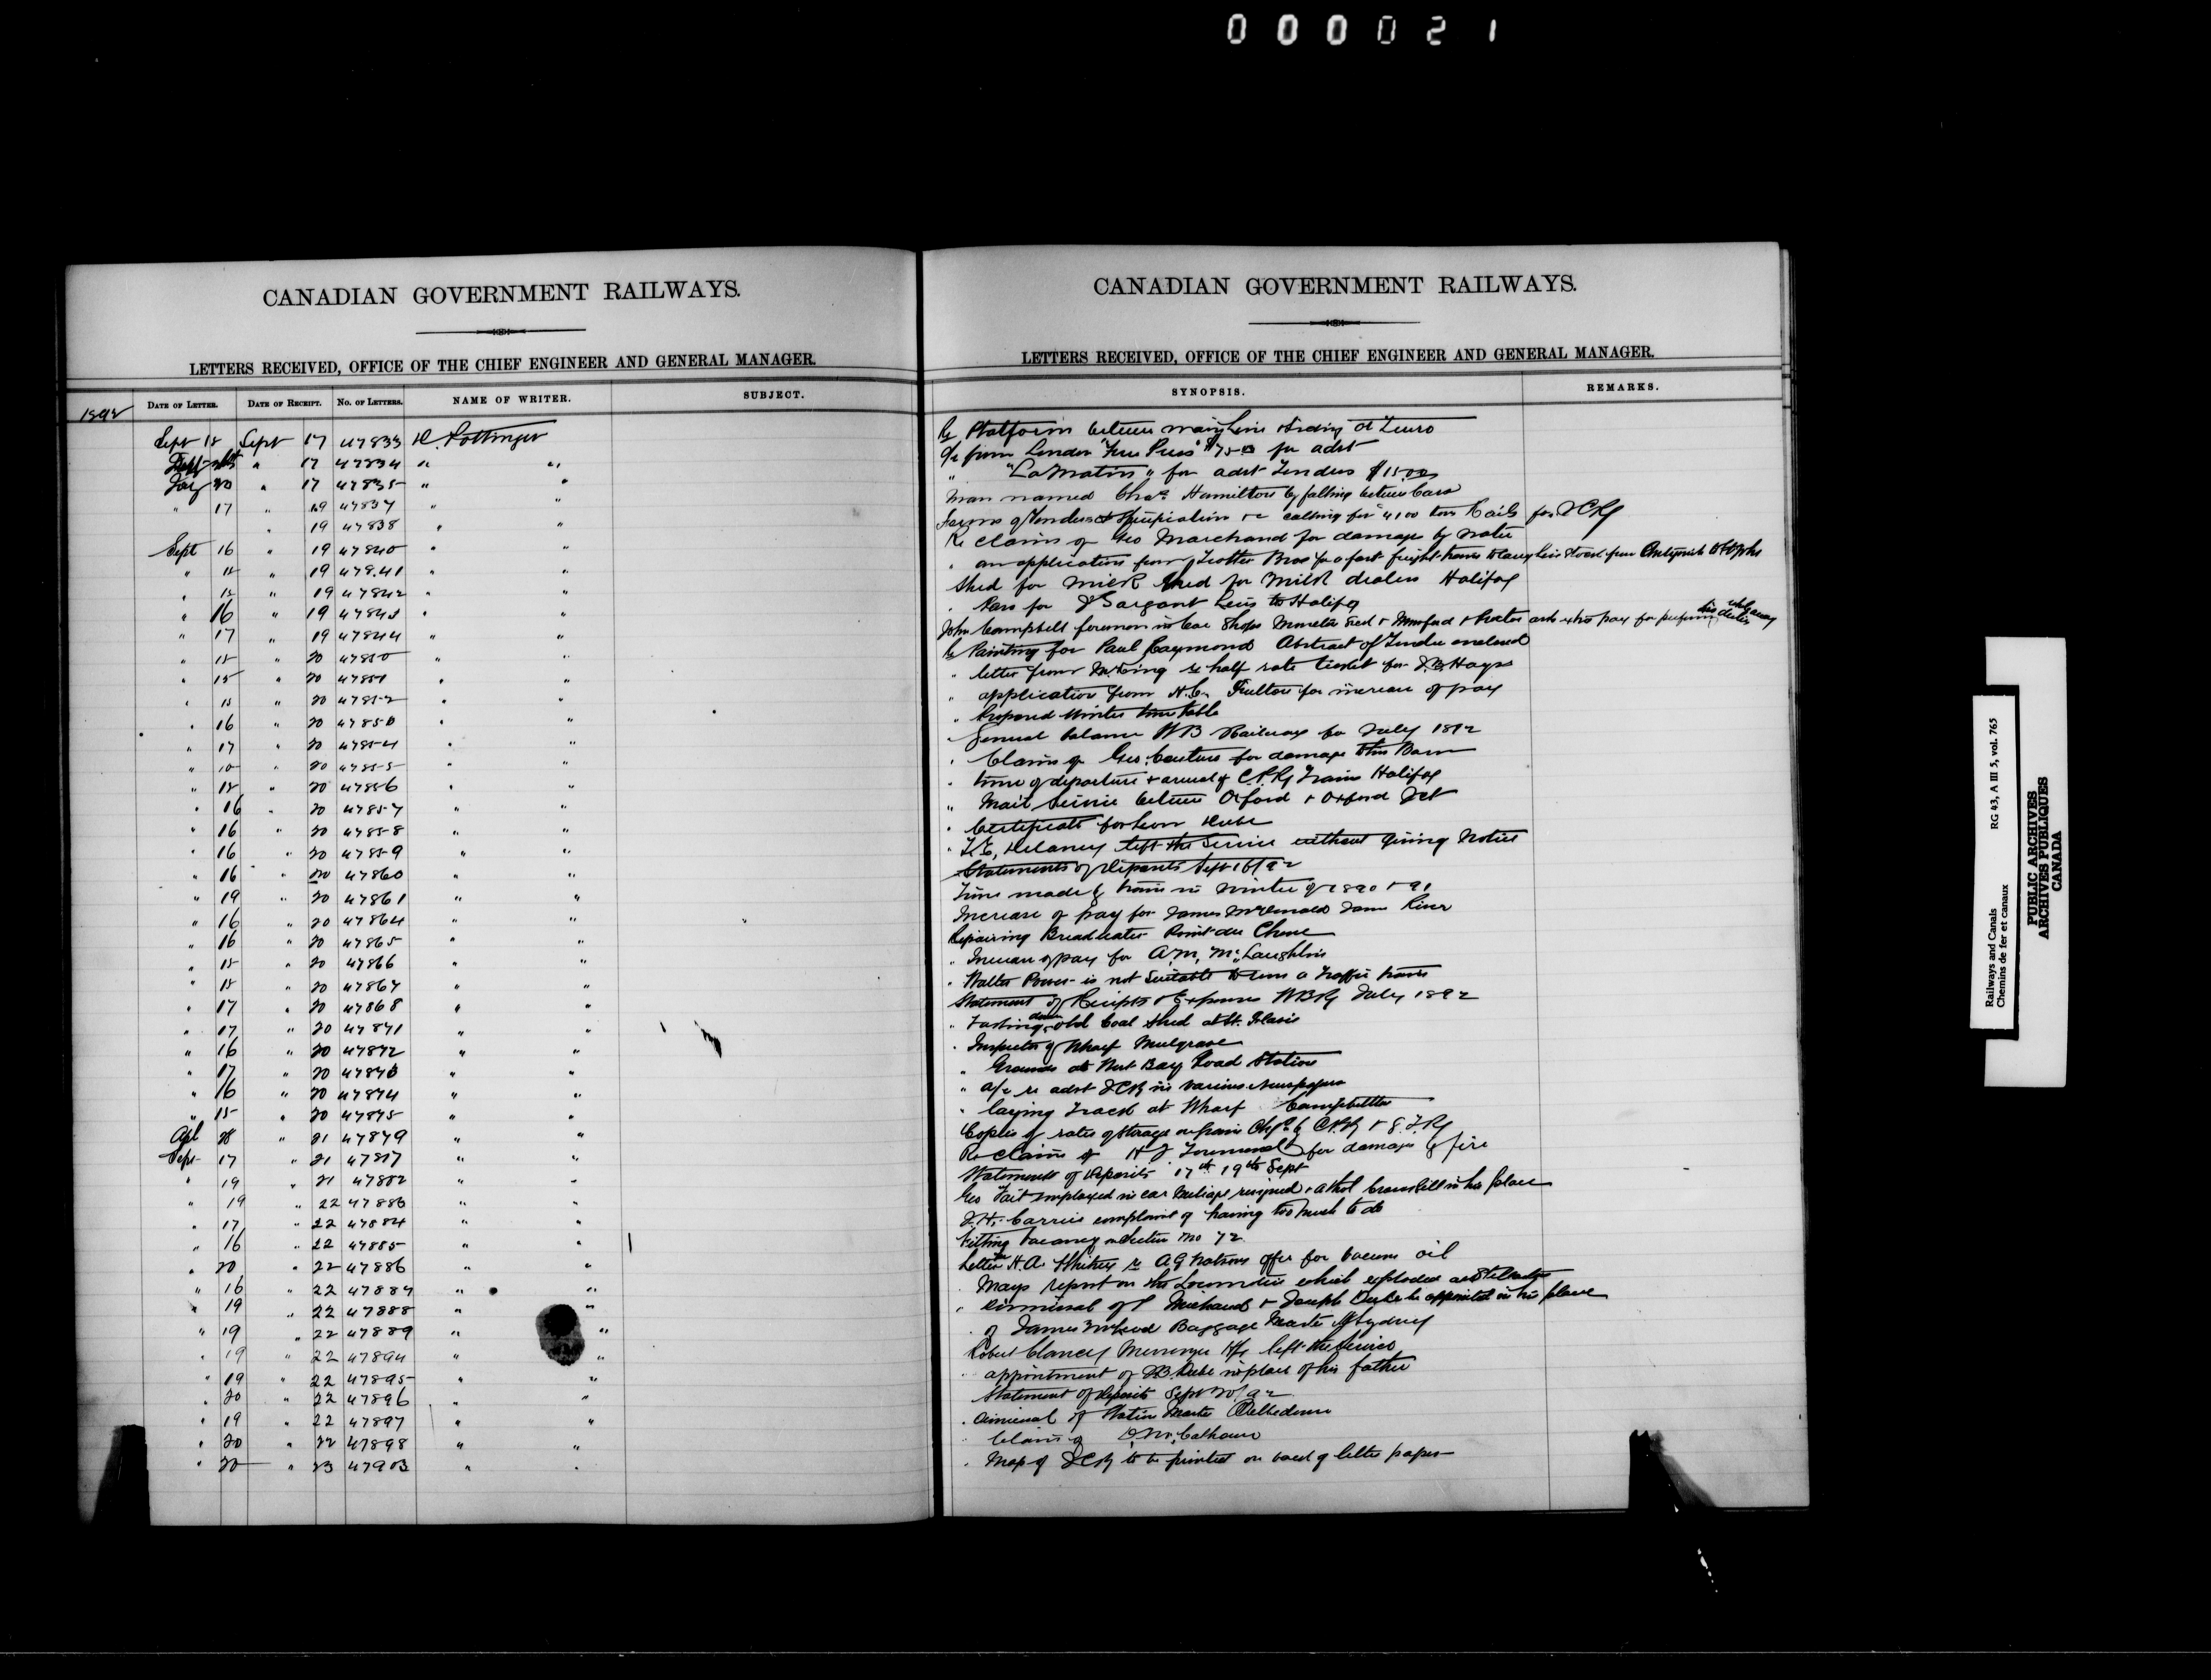 000021
CANADIAN GOVERNMENT RAILWAYS.
LETTERS RECEIVED, OFFICE OF THE CHIEF ENGINEER AND GENERAL MANAGER.
1892 DATE OF LETTER. DATE OF RECEIPT. NO. OF LETTERS. NAME OF WRITER. SUBJECT.
Sept 15 Sept 17 47833 D. Pottinger
17 47834 " "
20 " 17 47835 " "
" 17 " 19 47837 " "
" 19 47838 " "
Sept 16 " 19 47840 " "
" 15 " 19 47841 " "
" 15 " 19 47842 " "
" 16 " 19 47843 " "
" 17 " 19 47844 " "
" 15 " 20 47850 " "
" 15 " 20 47851 " "
" 15 " 20 47852 " "
" 16 " 20 47853 " "
" 17 " 20 47854 " "
" 20 47855 " "
" 15 " 20 47856 " "
" 16 " 20 47857 " "
" 16 " 20 47858 " "
" 16 " 20 47859 " "
" 16 " 20 47860 " "
" 19 " 20 47861 " "
" 16 " 20 47864 " "
" 16 " 20 47865 " "
" 15 " 20 47866 " "
" 15 " 20 47867 " "
" 17 " 20 47868 " "
" 17 " 20 47871 " "
" 16 " 20 47872 " "
" 17 " 20 47873 " "
" 16 " 20 47874 " "
" 15 " 20 47875 " "
Apl 28 " 21 47879 " "
Sept 17 " 21 " "
" 19 " 21 47882 " "
" 19 " 22 " "
" 17 " 22 47884 " "
" 16 " 22 47885 " "
" 20 " 22 47886 " "
" 16 " 22 47887 " "
" 19 " 22 47888 " "
" 19 " 22 47889 " "
" 19 " 22 47894 " "
" 19 " 22 47895 " "
" 20 " 22 47896 " "
" 19 " 22 47897 " "
" 20 " 22 47898 " "
" 20 " 23 47903 " "
CANADIAN GOVERNMENT RAILWAYS.
LETTERS RECEIVED, OFFICE OF THE CHIEF ENGINEER AND GENERAL MANAGER.
SYNOPSIS. REMARKS.
Re Platform between main line & siding at Truro
a/c from London "Free Press" $75.00 for advt
" "La Matin" for advt Tenders $15.00
Man named Chas Hamilton by falling between cars
Forms of Tenders & Specification &c calling for 4100 tons Rails for ICRy
Re claim of Geo Marchand for damage by water
" an application from Trotter Bros for a fast freight train to carry live stock from Antigonish to St John
Shed for milk dealers Halifax
" Pass for J Sargant Levis to Halifax
John Campbell foreman in Car Shops Moncton asks extra pay for performing his duties while away
Re Painting for Paul Raymond Abstract of Tender enclosed
" letter from re half rate ticket for Hays
" application from Fulton for increase of pay
" Proposed Winter time table
" General balance WB Railway for July 1892
" Claim of Geo Couture for damage to his Barn
" time of departure & arrival of C.P.Ry Trains Halifax
" Mail service between Oxford & Oxford Jct
" Certificate for Leon Dube
" Delaney left the service without giving notice
Statements of Deposits Sept 16/92
Time made by trains in winter of 1890 & 91
Increase of pay for James McDonald River
Repairing Breakwater Point du Chene
" Increase of pay for A.M. McLaughlin
" Walter Power is not suitable to run a traffic train
Statement of Receipts & Expenses WBRy July 1892
" down old Coal Shed at St. Flavie
" Inspector of Wharf Mulgrave
" Grounds at West Bay Road Station
" a/c re advt ICR in various newspapers
" laying track at Wharf Campbellton
Copies of rates of storage on grain by C.P.Ry & G.T.Ry
Re claim of H J for damage by fire
Statements of Deposits 17th 19th Sept
Geo Tait employed in car mileage resigned & in his place
J.H. Carrier complaint of having too much to do
Filling vacancy on Section No 72
Letter H.A. Whitney re A G Watson offer for vacuum oil
" report on the Locomotive which exploded at Stellarton
" Dismissal of Michaud & Joseph Dube be appointed in his place
" of James McLeod Baggage Master N Sydney
Robert Clancey Messenger Hfx left the Service
" appointment of Dube in place of his father
Statement of Deposits Sept 20/92
" dismissal of Station Master
" Claim of Calhoun
" Map of ICRy to be printed on back of letter paper
Railways and Canals RG 43, A III 5, vol. 765
Chemins de fer et canaux
PUBLIC ARCHIVES
ARCHIVES PUBLIQUES
CANADA